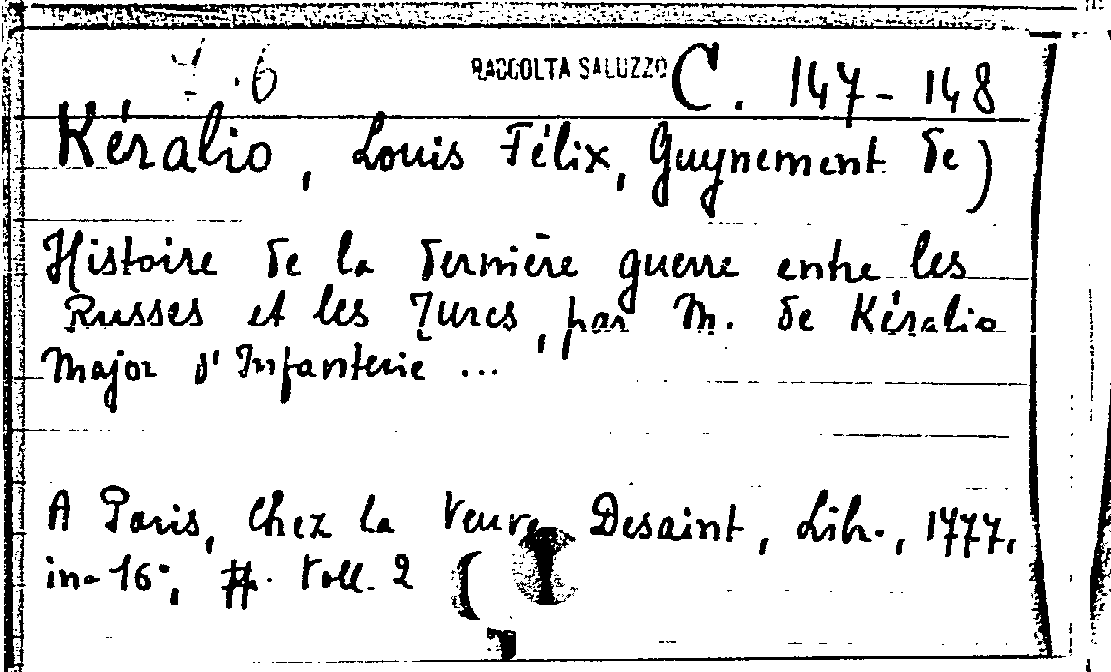 I.6 RACCOLTA SALUZZO C. 147-148
Kéralio, Louis Félix, Guynement de)
Histoire de la dernière guerre entre les
Russes et les Turcs, par M. de Kéralio
Major d'Infanterie ...
A Paris, chez la Veuve Desaint, Lib., 1777.
in-16°, ff. Voll. 2